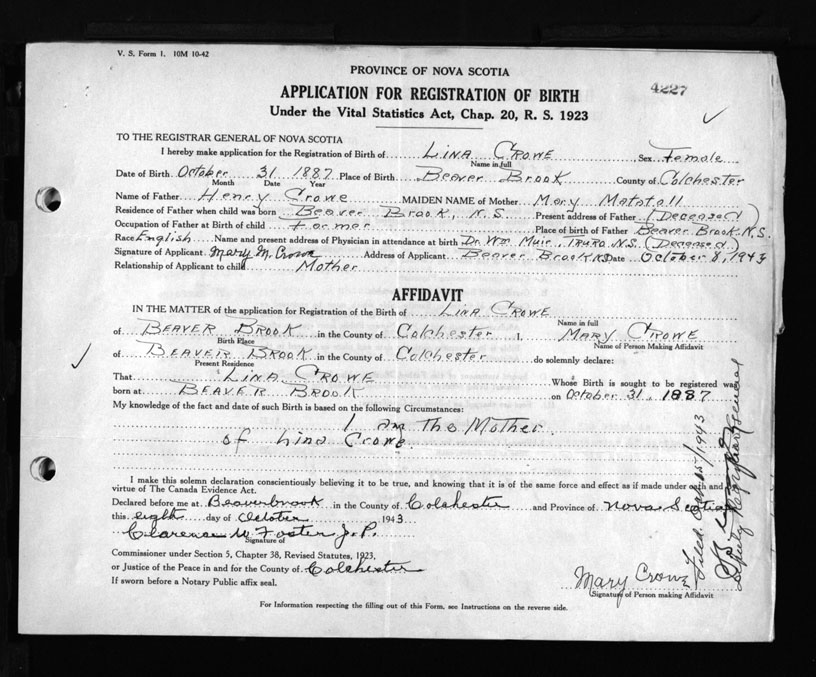 V. S. Form 1. 10M 10-42
PROVINCE OF NOVA SCOTIA
4227
APPLICATION FOR REGISTRATION OF BIRTH
Under the Vital Statistics Act, Chap. 20, R. S. 1923
TO THE REGISTRAR GENERAL OF NOVA SCOTIA
I hereby make application for the Registration of Birth of Lina Crowe, Sex Female
Name in full
Date of Birth October 31 1887 Place of Birth Beaver Brook County of Colchester
Month Date Year
Name of Father Henry Crowe MAIDEN NAME of Mother Mary Matstall
Residence of Father when child was born Beaver Brook, N.S. Present address of Father (Deceased)
Occupation of Father at Birth of child Farmer Place of birth of Father Beaver Brook N.S.
Race English Name and present address of Physician in attendance at birth Dr. Wm Muir, Truro N.S. (Deceased)
Signature of Applicant Mary M. Crowe Address of Applicant Beaver Brook NS Date October 8, 1943
Relationship of Applicant to child Mother
AFFIDAVIT
IN THE MATTER of the application for Registration of the Birth of Lina Crowe
Name in full
of Beaver Brook in the County of Colchester I, Mary Crowe
Birth Place Name of Person Making Affidavit
of Beaver Brook in the County of Colchester do solemnly declare:
Present Residence
That Lina Crowe Whose Birth is sought to be registered was
born at Beaver Brook on October 31, 1887
My knowledge of the fact and date of such Birth is based on the following Circumstances:
I am the Mother
of Lina Crowe.
I make this solemn declaration conscientiously believing it to be true, and knowing that it is of the same force and effect as if made under oath and
virtue of The Canada Evidence Act.
Declared before me at Beaverbrook in the County of Colchester and Province of Nova Scotia
this eight day of October 1943
Clarence W Foster J. P.
Signature of
Commissioner under Section 5, Chapter 38, Revised Statutes, 1923,
or Justice of the Peace in and for the County of Colchester
If sworn before a Notary Public affix seal.
Mary Crowe
Signature of Person making Affidavit
For Information respecting the filling out of this Form, see Instructions on the reverse side.
Filed 15/1943
Deputy Registrar General